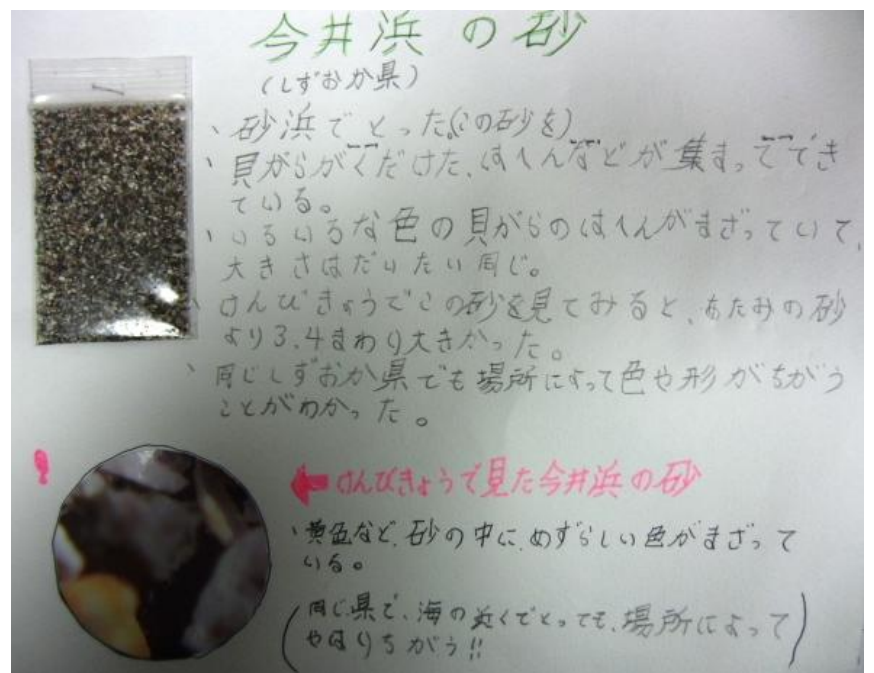 今井浜の砂
(しずおか県)
、砂浜でとった。(この砂を)
、貝がらがくだけた、はへんなどが集まってでき
ている。
、いろいろな色の貝がらのはへんがまざっていて、
大きさはだいたい同じ。
、けんびきょうでこの砂を見てみると、あたみの砂
より3.4まわり大きかった。
、同じしずおか県でも場所によって色や形がちがう
ことがわかった。
←けんびきょうで見た今井浜の砂
、黄色など、砂の中に、めずらしい色がまざって
いる。
(同じ県で、海の近くでとっても、場所によって
やはりちがう!!)